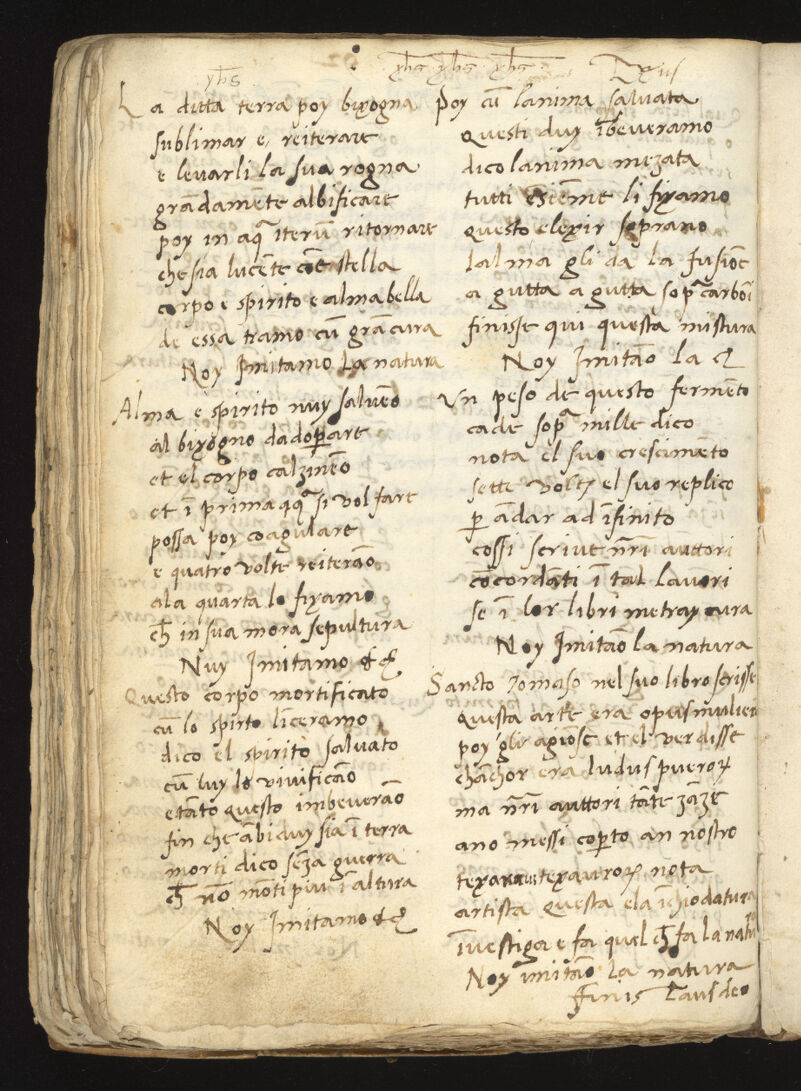 yhs
La ditta terra poy bixogna
sublimar e, reiterare
e levarli la sua rogna
grādamēte albificare
poy in aqꝫ iterū ritornare
che sia lucēte cōe stella
corpo e spirito e alma bella
de essa tramo cū grā cura
Noy Imitamo La natura
Alma e spirito nuy salvēo
al bixogno dadoꝑare
et el corpo calzinēo
et ī prima aqꝫ si vol fare
possa poy coagulare
e quatro volte reiterāo
ala quarta lo fixamo
ch̄ in sua mora sepultura
Nuy Imitamo &c
Questo corpo mortificato
cū lo spirto līceramo
dico el spirito salvato
cū luy lo vivificāo
e tāto questo imbeverāo
fin che ābiduy sia ī terra
morti dico sēza guerra
ch̄ nō mōti piu ī altura
Noy Imitamo &c
yhs yhs yhs
Poy cū lanima salvata
questi duy ībeveramo
dico lanima mezata
tutti esiēme li fixamo
questo elexir soprano
lalma gli da la fusiōe
a gutta a gutta sopꝫ carbōi
finisse qui questa mistura
Noy Imitāo la &c
Un peso de questo fermēto
cade sopꝫ mille dico
nota el suo crescimēto
sette volte el suo replico
ꝑ ādar ad īfinito
cossi scrive nr̄i auttori
cōcordāti ī tal lavori
se ī lor libri metray cura
Noy Imitāo la natura
Sancto Tomaso nel suo libro scrisse
questa arte era opus mulier
poy gli agiose et el ver disse
chāchor era ludus pueroꝝ
ma nr̄i auttori tāte zāze
ano messi coꝑto an nostro
texauroꝝ nota
artista questa e la īchiodatura
īvestiga e fa quel ch̄ fa la natu
Noy imitāo la natura
Finis Laus deo